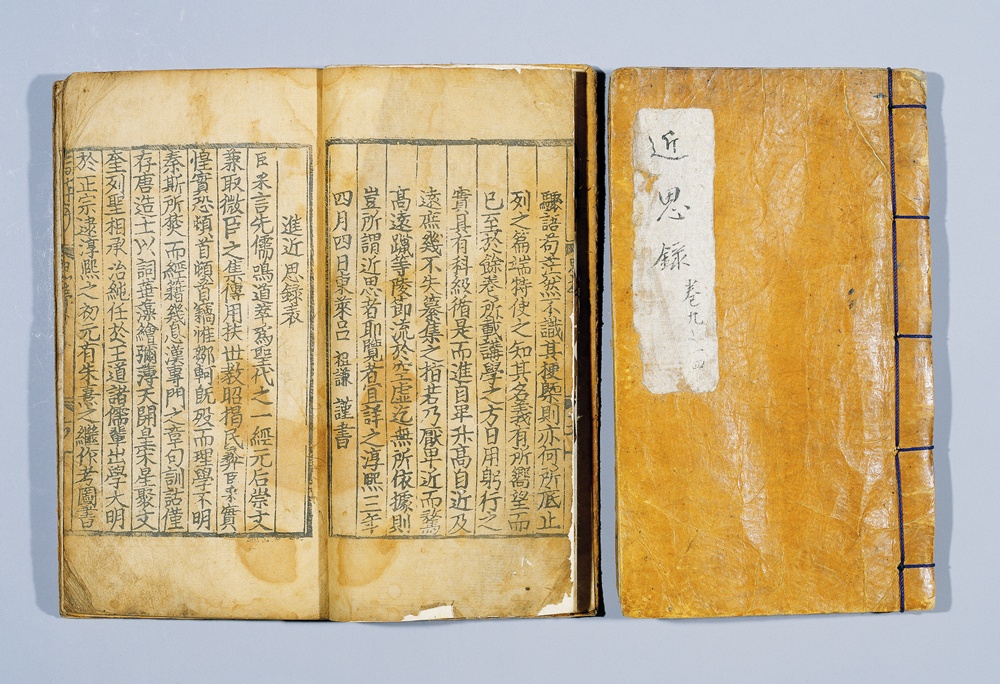 驟語苟茫然不識其梗槩則亦何所底止
列之篇端特使之知其名義有所嚮望而
已至於餘卷所載講學之方日用躬行之
實具有科級循是而進自卑升高自近及
遠庶幾不失纂集之指若乃厭卑近而騖
高遠躐等陵節流於空虛迄無所依據則
豈所謂近思者耶覽者宜詳之淳熙三年
四月四日東萊呂 祖謙 謹書
進近思錄表
臣采言先儒鳴道萃爲聖代之一經元后崇文
兼取微臣之集傳用扶世教昭揭民彝臣采實
惶實恐頓首頓首竊惟鄒軻旣歿而理學不明
秦斯所焚而經籍幾息漢專門之章句訓詁僅
存唐造士以詞華藻繪彌薄天開皇宋星聚文
奎列聖相承治純任於王道諸儒輩出學大明
於正宗逮淳熙之初元有朱熹之繼作考圖書
近思錄
卷九之十四